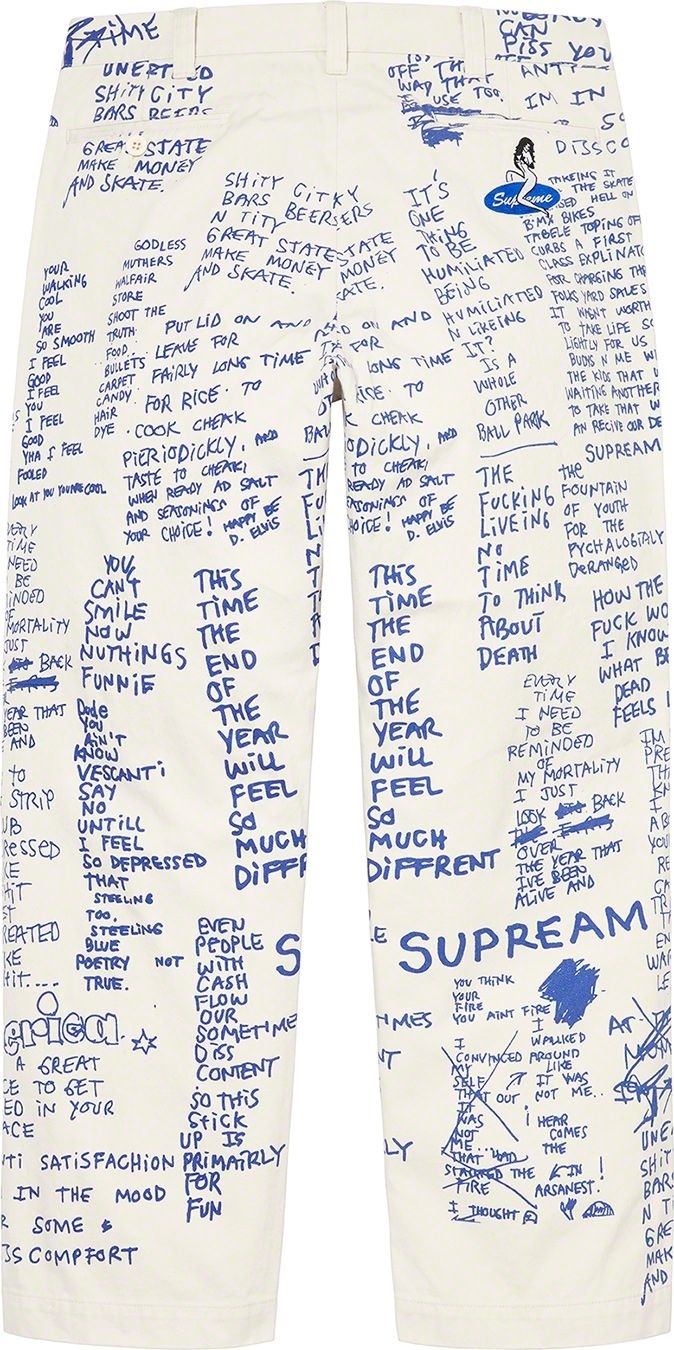 CRIME
UNERTED
SHITY CITY
BARS BEERS
GREAT STATE
MAKE MONEY
AND SKATE.
CAN
PISS YOU
OFF THE
WAD THAT
USE TOO.
ANTI
IM IN
DISSCO
Supreme
SHITY CITKY
BARS BEERSERS
N TITY
GREAT STATESTATE
MAKE MONEY MONEY
AND SKATE. KATE.
IT'S
ONE
THING
TO BE
HUMILIATED
BEING
HUMILIATED
N LIKEING
IT?
IS A
WHOLE
OTHER
BALL PARK
TAKEING IT
THE SKATE
HELL ON
BMX BIKES
TABELE TOPING OFF
CURBS A FIRST
CLASS EXPLINAT
FOR CHARGING THE
FOLKS YARD SALES
IT WASNT WORTH
TO TAKE LIFE SO
LIGHTLY FOR US
BUDIS N ME WI
THE KIDS THAT W
WAITING ANOTHER
TO TAKE THAT W
AN RECIVE OUR DE
SUPREAM
YOUR
WALKING
COOL
YOU
ARE
SO SMOOTH
I FEEL
GOOD
I FEEL
YOU
I FEEL
GOOD
YHA I FEEL
FOOLED
LOOK AT YOU YOU ARE COOL
GODLESS
MUTHERS
WALFAIR
STORE
SHOOT THE
TRUTH.
FOOD.
BULLETS
CARPET
CANDY.
HAIR
DYE.
PUT LID ON AND AND ON AND
LEAVE FOR FOR
FAIRLY LONG TIME LONG TIME
FOR RICE. TO RICE. TO
COOK CHEAK CHEAK
PIERIODICKLY, AND ODICKLY, AND
TASTE TO CHEAK, TO CHEAK,
WHEN READY AD SALT READY AD SALT
AND SEASONINGS OF SONINGS OF
YOUR CHOICE! HAPPY BE HOICE! HAPPY BE
D. ELVIS D. ELVIS
THE
FUCKING
LIVEING
NO
TIME
TO THINK
ABOUT
DEATH
THE
FOUNTAIN
OF YOUTH
FOR THE
PYCHALOGITALY
DERANGED
HOW THE
FUCK WO
I KNOW
WHAT BE
DEAD
FEELS L
EVERY
TIME
NEED
BE
MINDED
MORTALITY
JUST
BACK
YEAR THAT
BEEN
AND
YOU
CAN'T
SMILE
NOW
NUTHINGS
FUNNIE
Dude
YOU
AIN'T
KNOW
VESCANTI
SAY
NO
UNTILL
I FEEL
SO DEPRESSED
THAT
STEELING
TOO.
STEELING
BLUE
POETRY NOT
TRUE.
THIS
TIME
THE
END
OF
THE
YEAR
WILL
FEEL
SO
MUCH
DIFFR
THIS
TIME
THE
END
OF
THE
YEAR
WILL
FEEL
SO
MUCH
DIFFRENT
EVERY
TIME
I NEED
TO BE
REMINDED
OF
MY MORTALITY
I JUST
LOOK BACK
OVER
THE YEAR THAT
IVE BEEN
ALIVE AND
TO
STRIP
RESSED
REATED
erica
A GREAT
CE TO GET
ED IN YOUR
ACE
NTI SATISFACHION
IN THE MOOD
SOME
SS COMPFORT
EVEN
PEOPLE
WITH
CASH
FLOW
OUR
SOMETIME
DISS
CONTENT
SO THIS
STICK
UP IS
PRIMAIRLY
FOR
FUN
S
LE SUPREAM
IMES
NT
LY
YOU THINK
YOUR
FIRE
YOU AINT FIRE
I
CONVINCED
MY
SELF
THAT OUT
IT
WAS
NOT
ME...
THAT HAD
STARTED THE
FIRE
I THOUGHT
I
WALLKED
AROUND
LIKE
IT WAS
NOT ME..
I HEAR
COMES
THE
IN !
ARSANEST.
IM
PRE
UNE
SHIT
BARS
N TI
GRE
MAK
AND